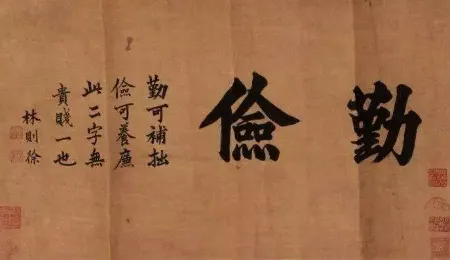 勤儉
勤可補拙
儉可養廉
此二字無
貴賤一也
林則徐